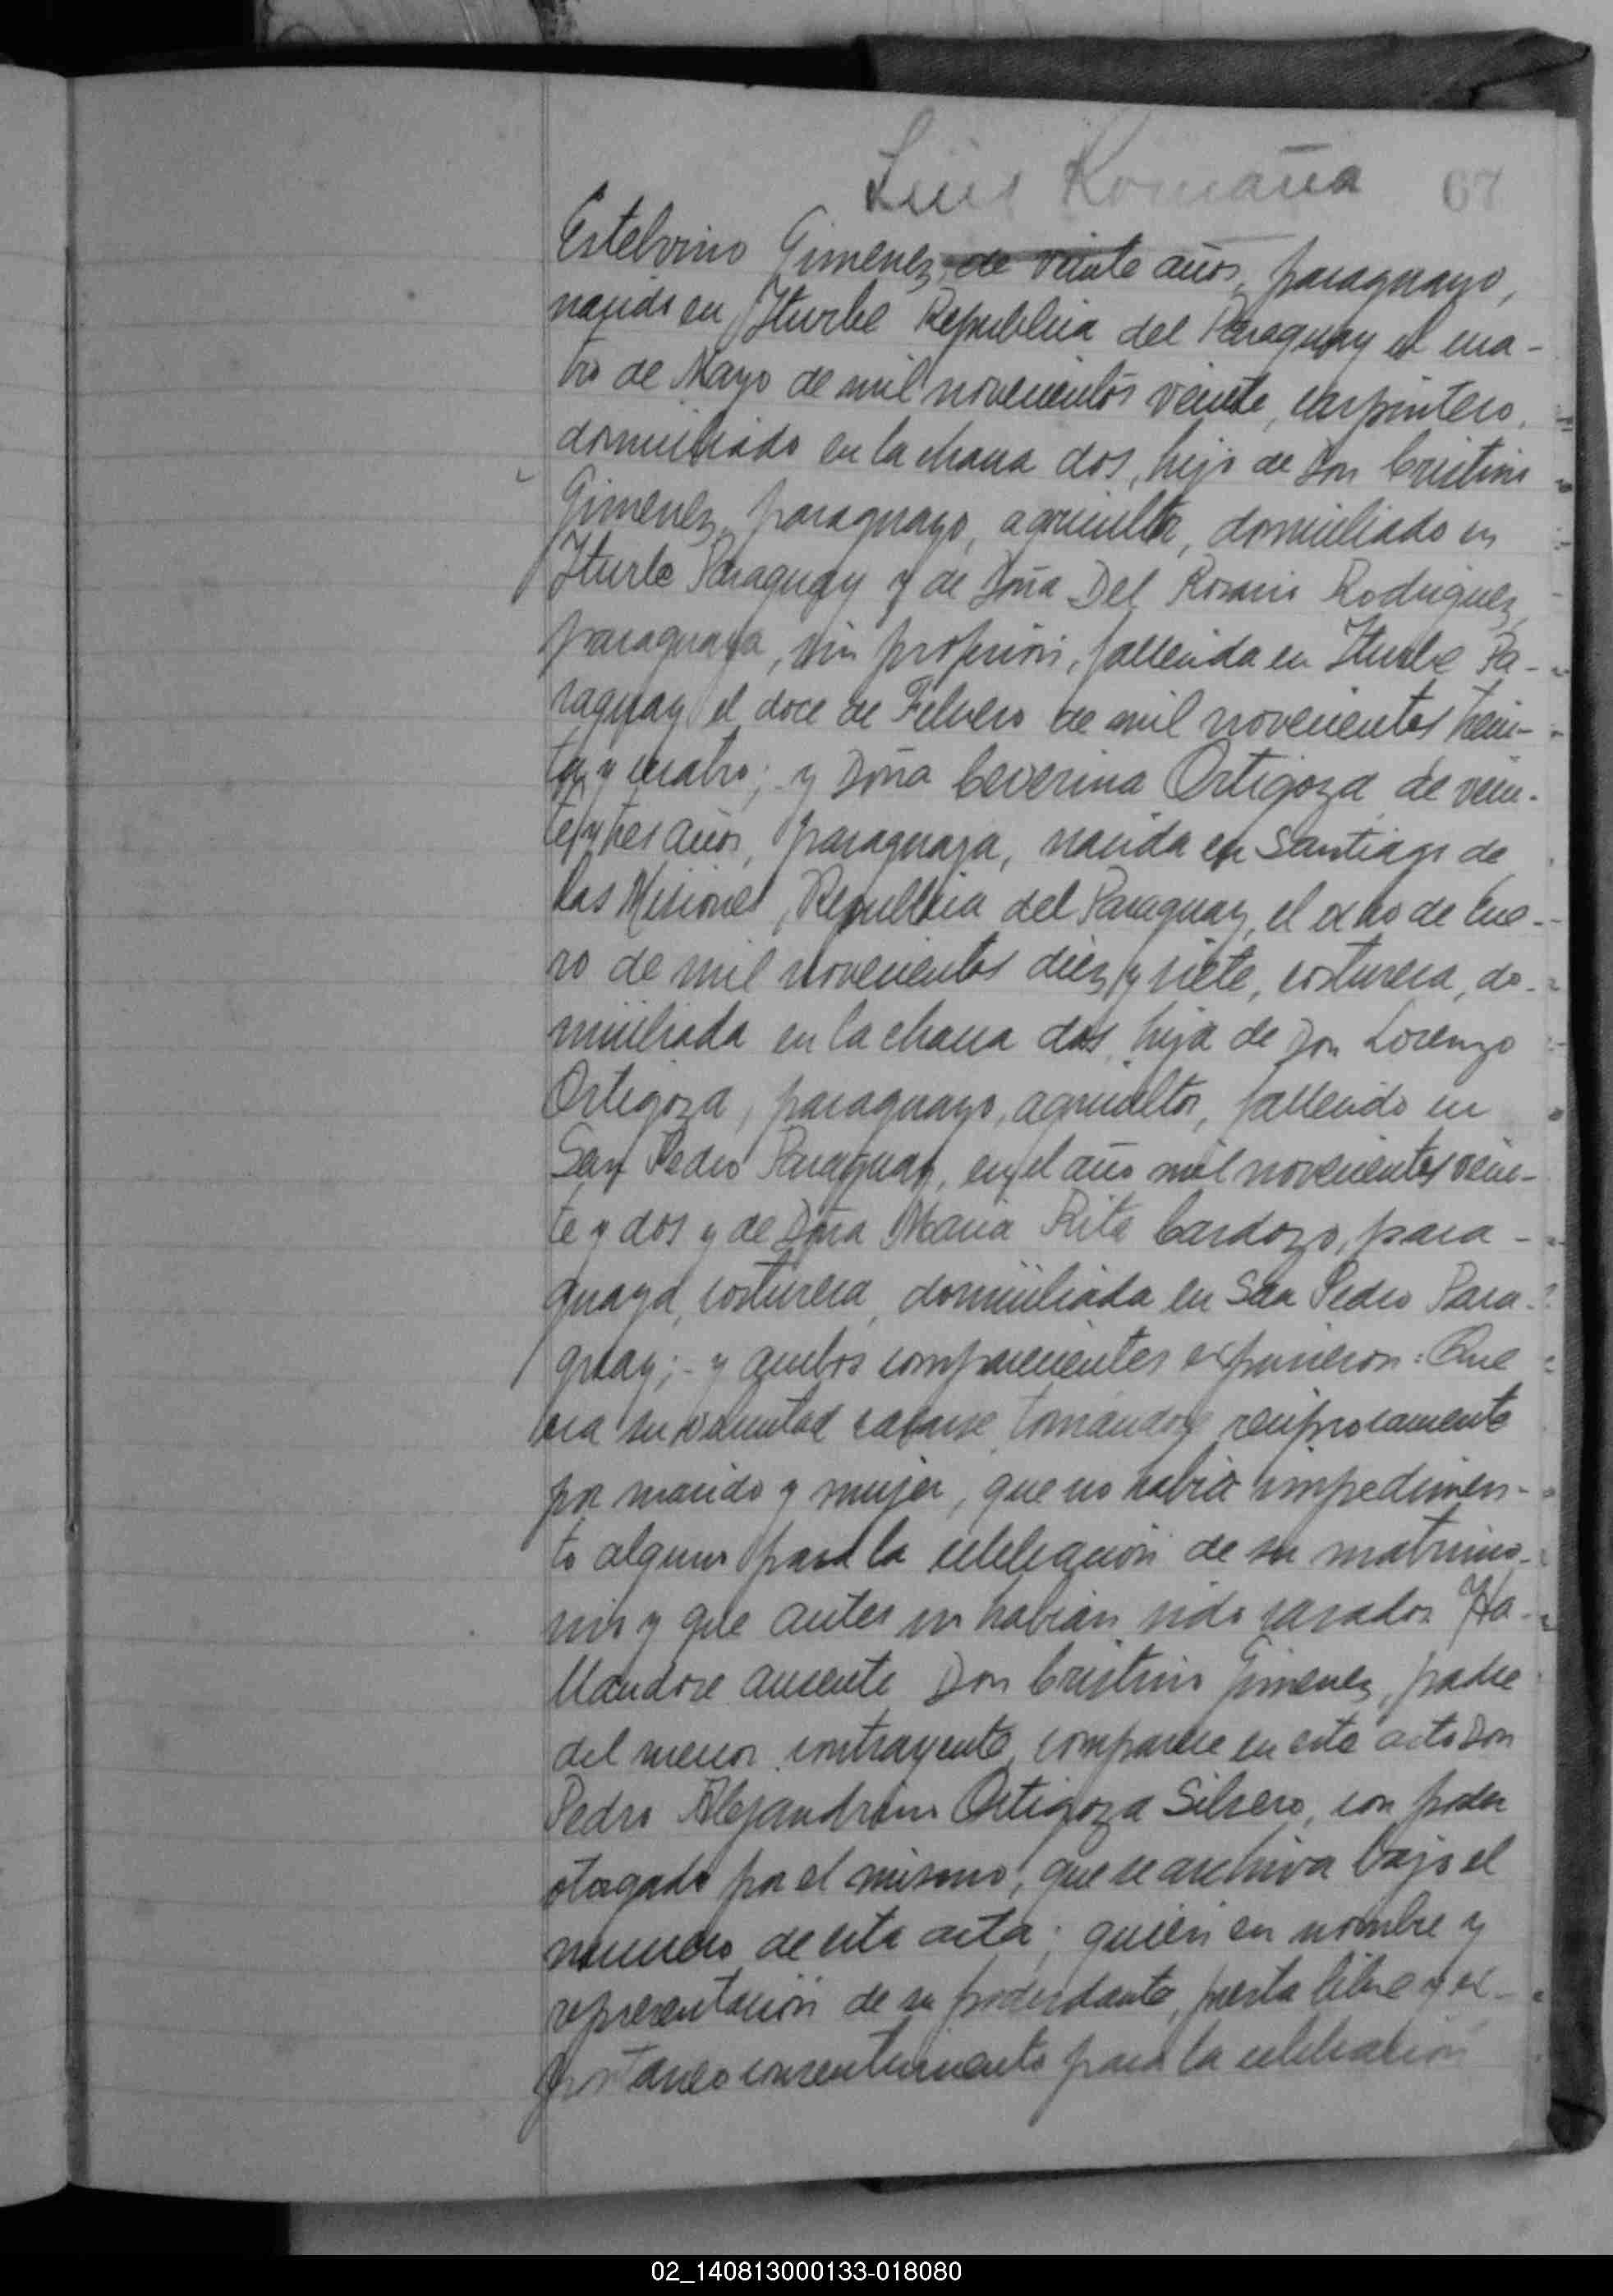 Luis Romaña 67
Estelvino Gimenez, de veinte años, paraguayo,
nacido en Iturbe Republica del Paraguay el cua-
tro de Mayo de mil novecientos veinte, carpintero,
domiciliado en la chacra dos, hijo de Don Cristino
Gimenez, paraguayo, agricultor, domiciliado en
Iturbe Paraguay y de Doña Del Rosario Rodriguez,
paraguaya, sin profesion, fallecida en Iturbe Pa-
raguay el doce de Febrero de mil novecientos trein-
ta y cuatro; y Doña Ceverina Ortigoza de vein-
te y tres años, paraguaya, nacida en Santiago de
las Misiones, Republica del Paraguay, el ocho de Ene-
ro de mil novecientos diez y siete, costurera, do-
miciliada en la chacra dos, hija de Don Lorenzo
Ortigoza, paraguayo, agricultor, fallecido en
San Pedro Paraguay, en el año mil novecientos vein-
te y dos y de Doña Maria Rita Cardozo, para-
guaya, costurera, domiciliada en San Pedro Para-
guay;- y ambos comparecientes expusieron: Que
era su voluntad casarse tomandose reciprocamente
por marido y mujer, que no habia impedimen-
to alguno para la celebracion de su matrimo-
nio y que antes no habian sido casados. Ha-
llandose ausente Don Cristino Gimenez, padre
del menor contrayente, comparece en este acto Don
Pedro Alejandrino Ortigoza Silvero, con poder
otorgado por el mismo, que se archiva bajo el
numero de esta acta; quien en nombre y
representación de su poderdante, presta libre y es-
pontaneo consentimiento para la celebracion
02_140813000133-018080